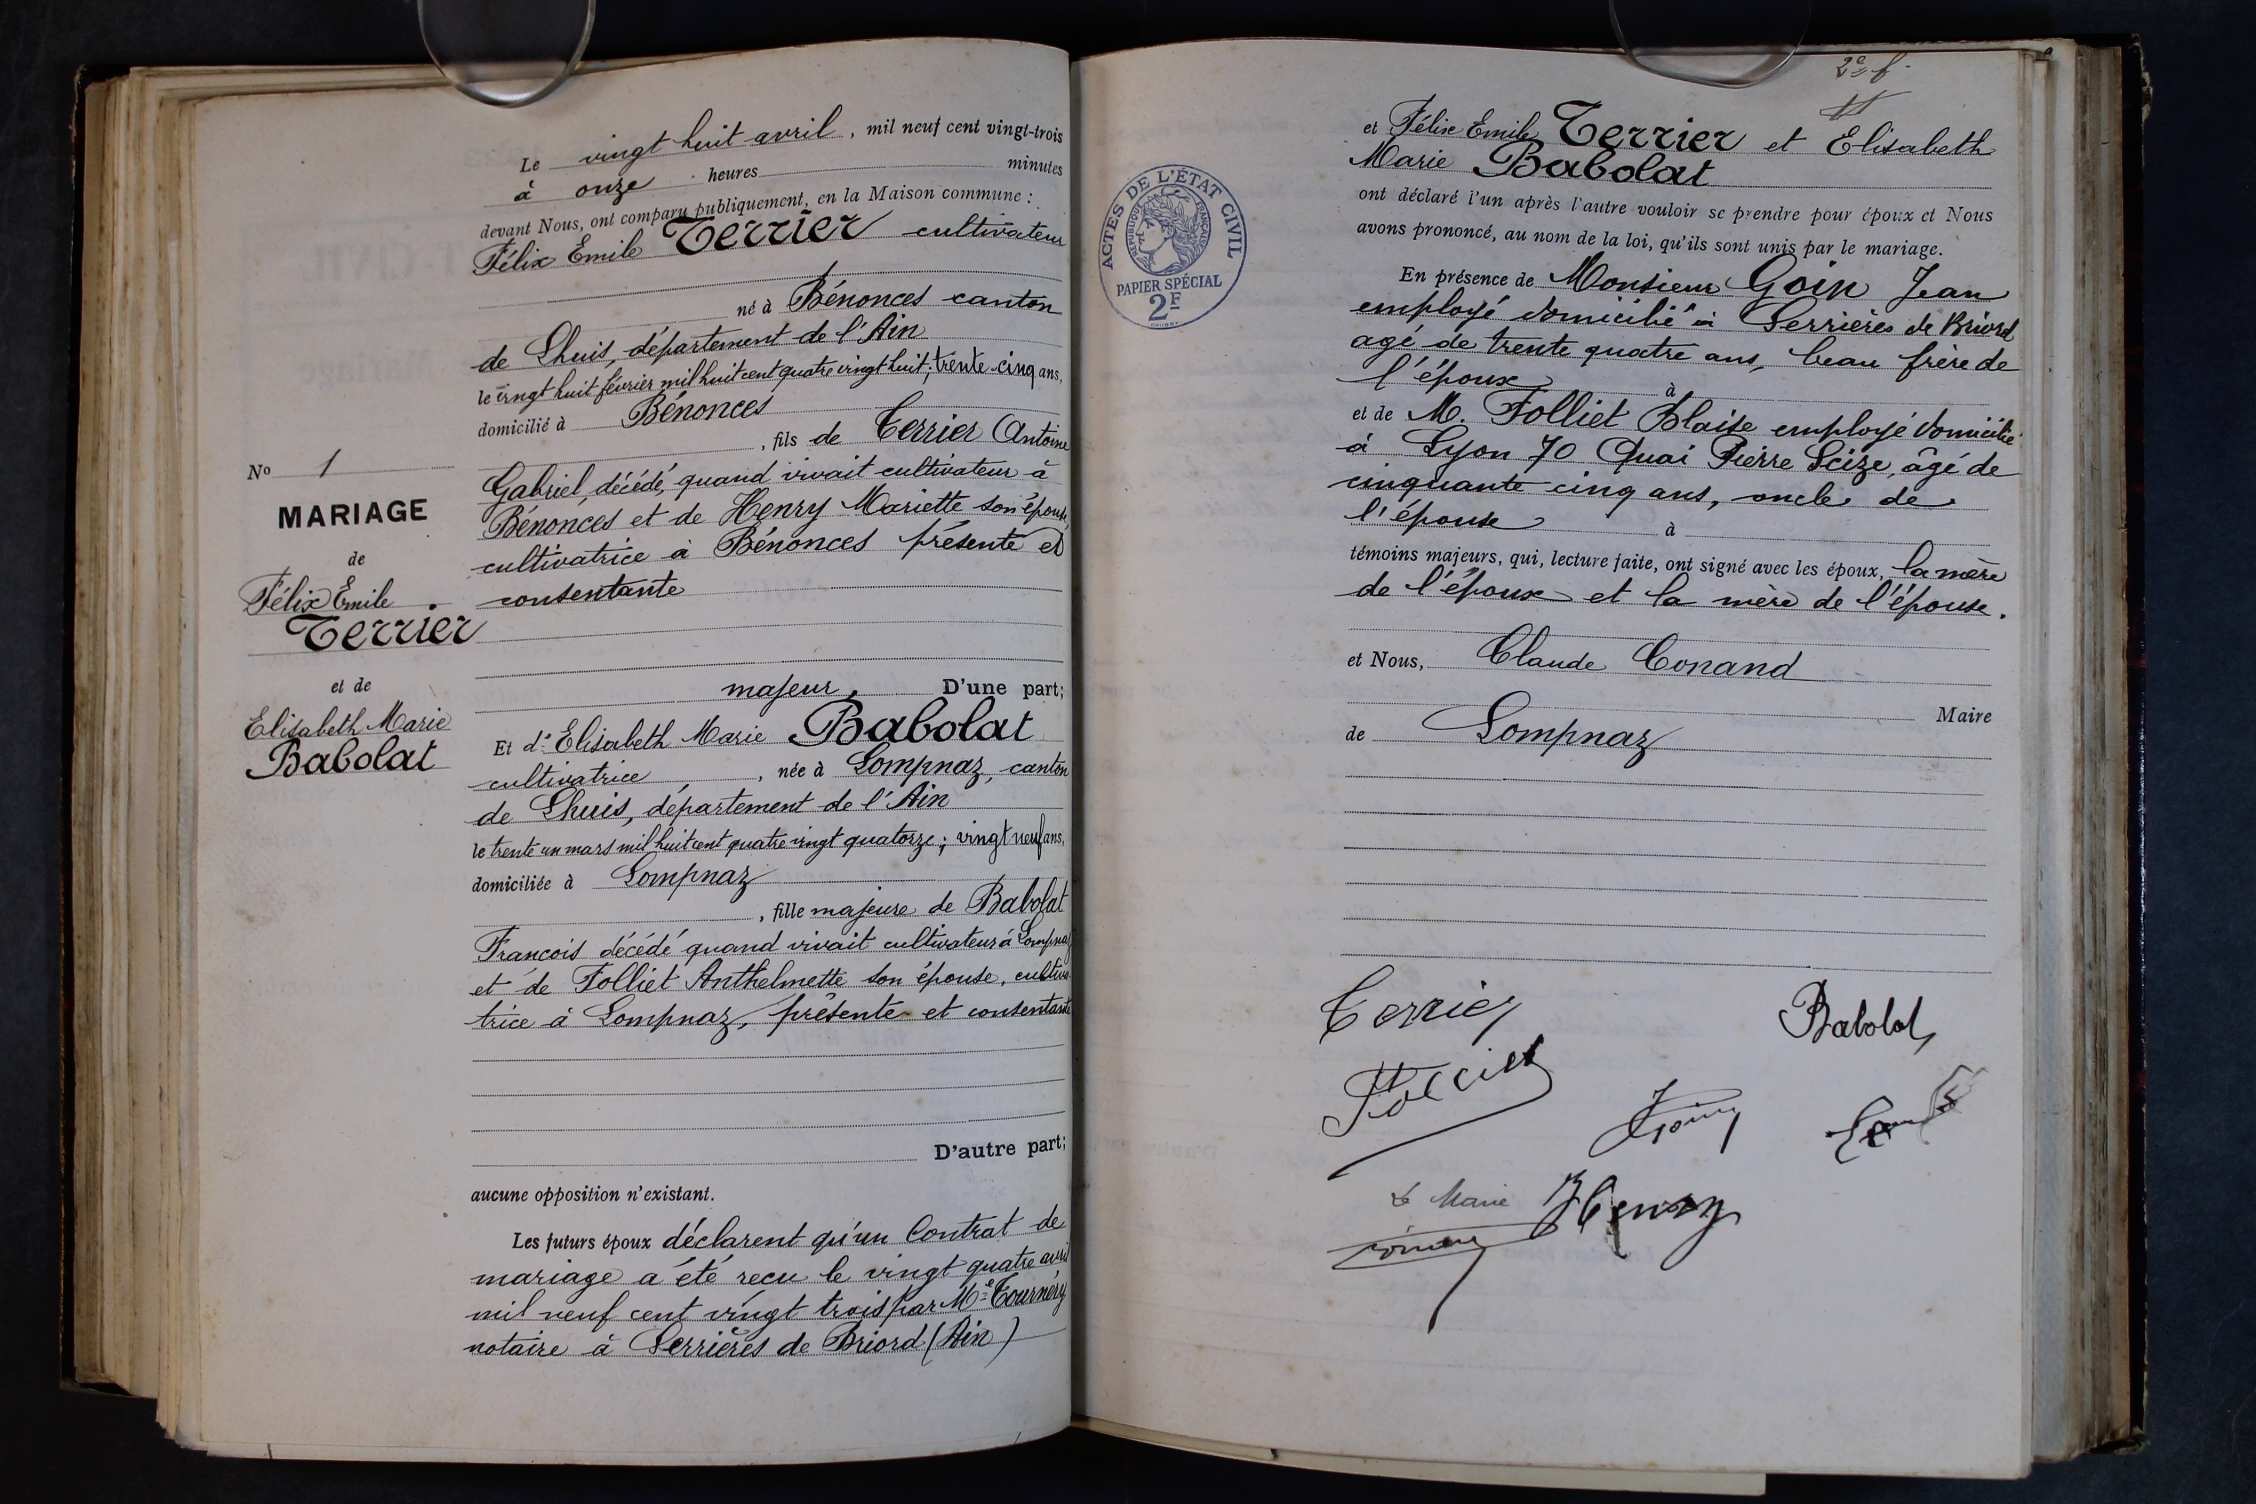 Le vingt huit avril, mil neuf cent vingt-trois
à onze heures minutes
devant Nous, ont comparu publiquement, en la Maison commune :
Félix Emile Terrier cultivateur
né à Bénonces canton
de Lhuis, département de l'Ain
le vingt huit février mil huit cent quatre vingt huit; trente-cinq ans,
domicilié à Bénonces
, fils de Terrier Antoine
Gabriel, décédé, quand vivait cultivateur à
Bénonces et de Henry Mariette son épouse,
cultivatrice à Bénonces présente et
consentante
majeur, D'une part;
Et d^e Elisabeth Marie Babolat
cultivatrice, née à Lompnaz, canton
de Lhuis, département de l'Ain
le trente un mars mil huit cent quatre vingt quatorze; vingt neuf ans,
domiciliée à Lompnaz
, fille majeure de Babolat
Francois décédé quand vivait cultivateur à Lompnaz
et de Folliet Anthelmette son épouse, cultiva
trice à Lompnaz, présente et consentante
D'autre part;
aucune opposition n'existant.
Les futurs époux déclarent qu'un Contrat de
mariage a été recu le vingt quatre avril
mil neuf cent vingt trois par M^e Tournéry
notaire à Serrières de Briord (Ain)
No 1
MARIAGE
de
Félix Emile
Terrier
et de
Elisabeth Marie
Babolat
2^e f.
ACTES DE L'ÉTAT CIVIL
RÉPUBLIQUE FRANÇAISE
PAPIER SPÉCIAL
2F
et Félix Emile Terrier et Elisabeth
Marie Babolat
ont déclaré l'un après l'autre vouloir se prendre pour époux et Nous
avons prononcé, au nom de la loi, qu'ils sont unis par le mariage.
En présence de Monsieur Goin Jean
employé domicilié à Serrières de Briord
agé de trente quatre ans, beau frère de
l'époux à
et de M. Folliet Blaise employé domicilié
à Lyon 70 Quai Pierre Scize, âgé de
cinquante cinq ans, oncle de
l'épouse à
témoins majeurs, qui, lecture faite, ont signé avec les époux, la mère
de l'époux et la mère de l'épouse.
et Nous, Claude Conand
Maire
de Lompnaz
Terrier
Babolat
Folliet
Goin
Le Maire
Henry
Conand